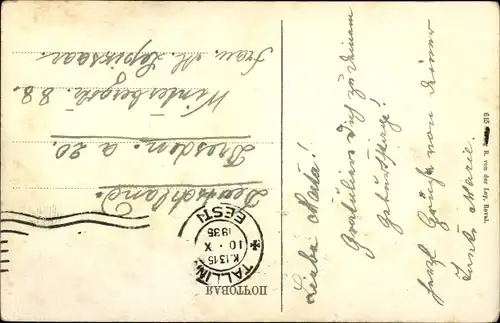 Liebe Marta!
Gratuliere Dich zu Deinem
Geburtstage!
herzl Grüße von Deiner
Tante Marie.
615 R. von der Ley, Reval.
ПОЧТОВАЯ
TALLINN
K.13 15
10. X
1935
EESTI
Frau. M. Lepiksaar.
Winterbergstr. 88.
Dresden. a 20.
Deutschland.